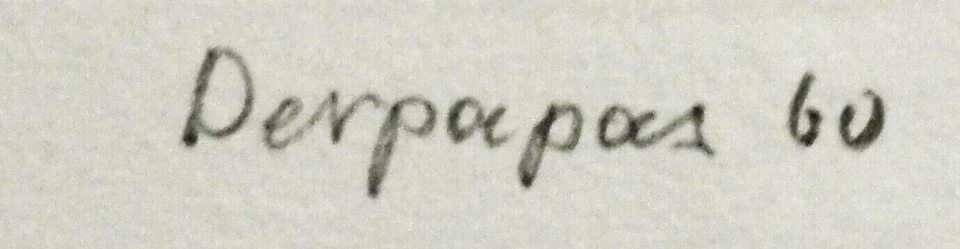 Derpapas 60